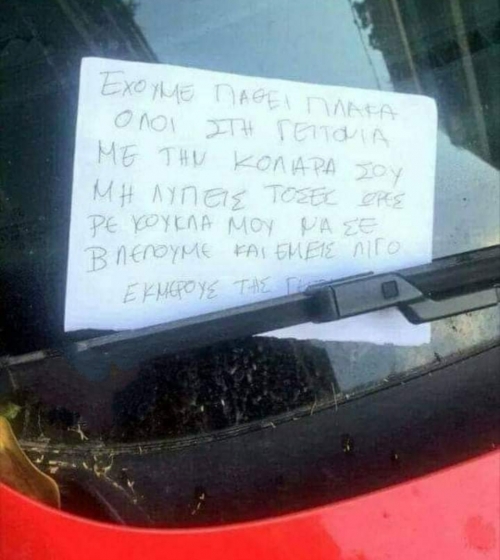 ΕΧΟΥΜΕ ΠΑΘΕΙ ΠΛΑΚΑ
ΟΛΟΙ ΣΤΗ ΓΕΙΤΟΝΙΑ
ΜΕ ΤΗΝ ΚΟΛΑΡΑ ΣΟΥ
ΜΗ ΛΥΠΕΙΣ ΤΟΣΕΣ ΩΡΕΣ
ΡΕ ΚΟΥΚΛΑ ΜΟΥ ΝΑ ΣΕ
ΒΛΕΠΟΥΜΕ ΚΑΙ ΕΜΕΙΣ ΛΙΓΟ
ΕΚ ΜΕΡΟΥΣ ΤΗΣ